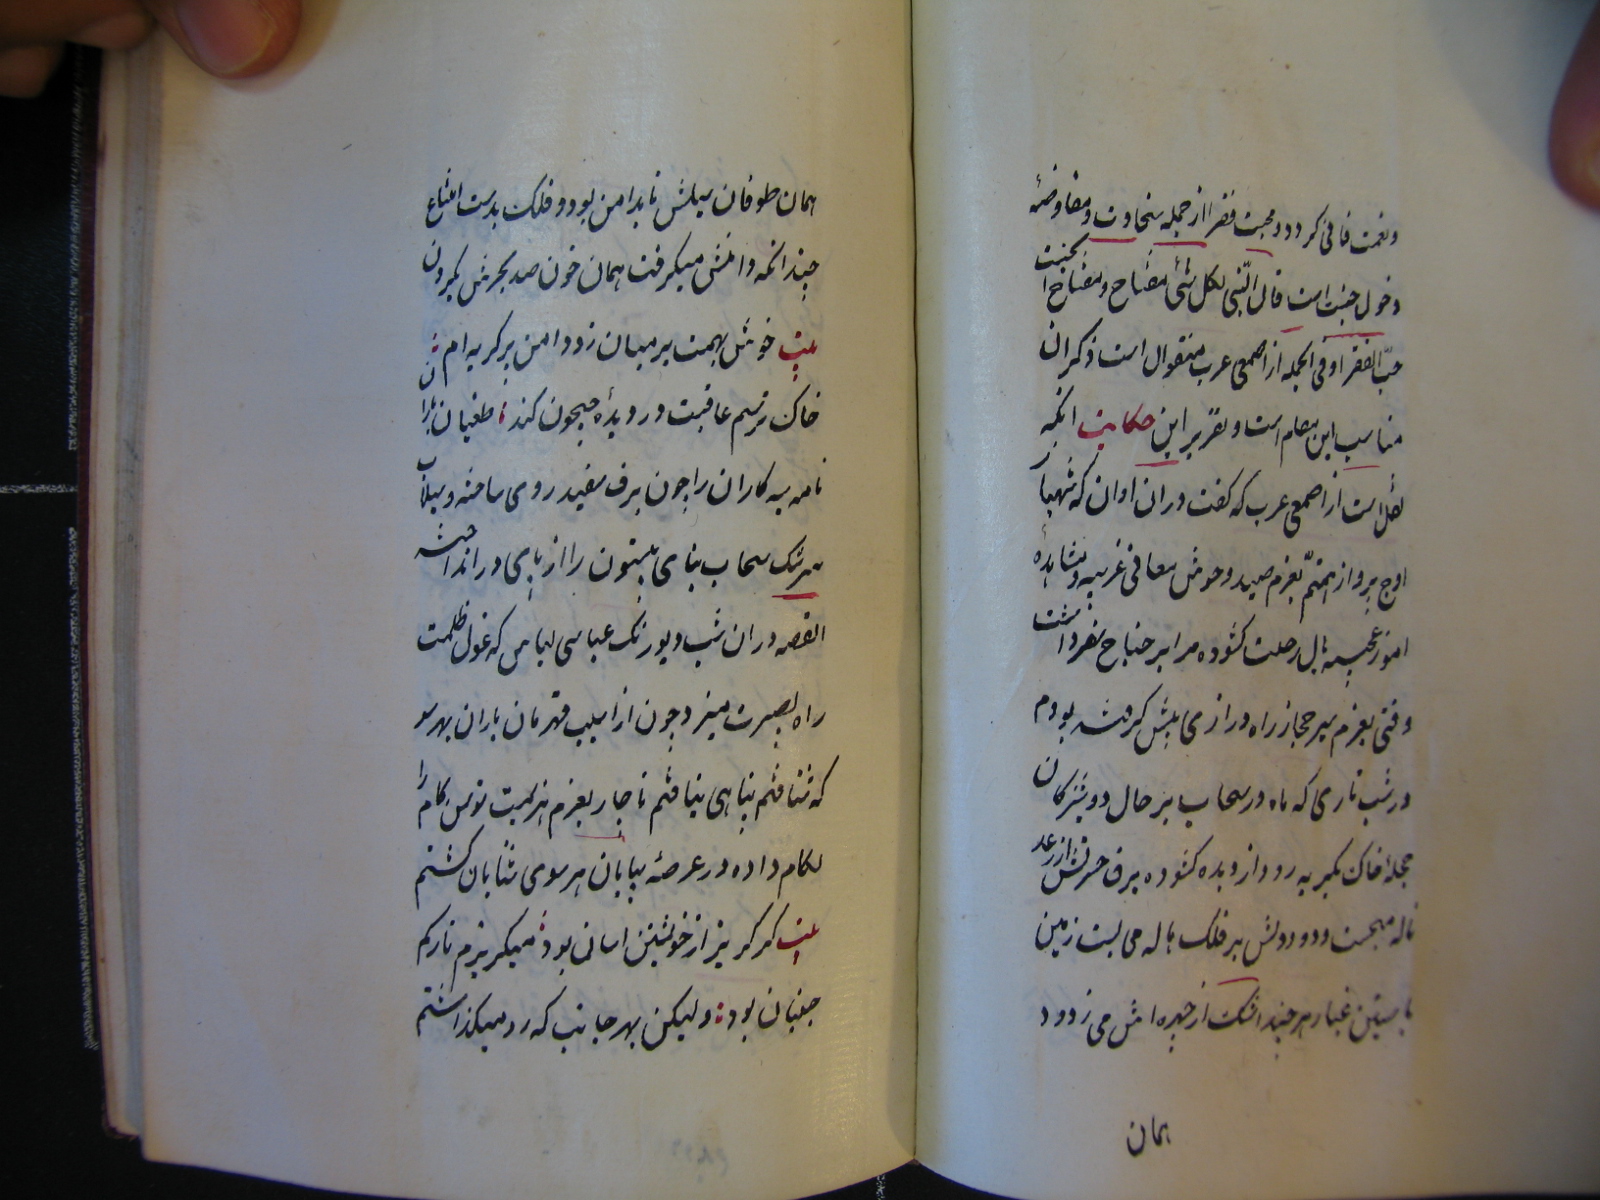 و نعمت فانی کردد و محبت فقرا از جمله سخاوت و مفاوضهٔ
دخول جنت است قال النّبی لکل شئی مفتاح و مفتاح الجنت
حبّ الفقرا و فی الجمله از اصمعی عرب منقول است ذکر ان
مناسب این مقام است و تقریر این حکایت انکه
نقل است از اصمعی عرب که کفت دران اوان که شهباز
اوج پرواز همتم بعزم صید وحوش معانی غریبه و مشاهدهٔ
امور عجیبه بال رحلت کشوده مرا بر جناح سفر داشت
وقتی بعزم سیر حجاز راه دراز می پیش کرفته بودم
در شب تاری که ماه در سحاب بر حال دوشیزکان
حجلهٔ خاک بکریه رود از دیده کشوده برق حسرتش از رعد
ناله میجست و دود دولش بر فلک هاله می بست زمین
باستین غبار هر چند اشک از چهره اش می زدود
همان
همان طوفان سیلش تا بدامن بود و فلک بدست امتناع
چندانکه دامنش میکرفت همان خون صد بحرش بیرون
بیت خوش بهمت بر میان زد دامن پر کریه ام
خاک ترسم عاقبت در دیدهٔ جیحون کند طغیان باران
نامه سیه کاران را چون برف سفید روی ساخته و سیلاب
سرشک سحاب بنای بیستون را از پای در انداخته
القصه دران شب دیو رنک عباسی لباس که غول ظلمت
راه بصیرت میزد چون از اسیب قهرمان باران بهر سو
که شتافتم پناهی نیافتم ناچار بعزم هزیمت توسن کام را
لکام داده در عرصهٔ بیابان هر سوی شتابان کشتم
بیت کر کریز از خویشتن اسان بود میکریزم تا رکم
جنبان بود ولیکن بهر جانب که رد میکذاشتم